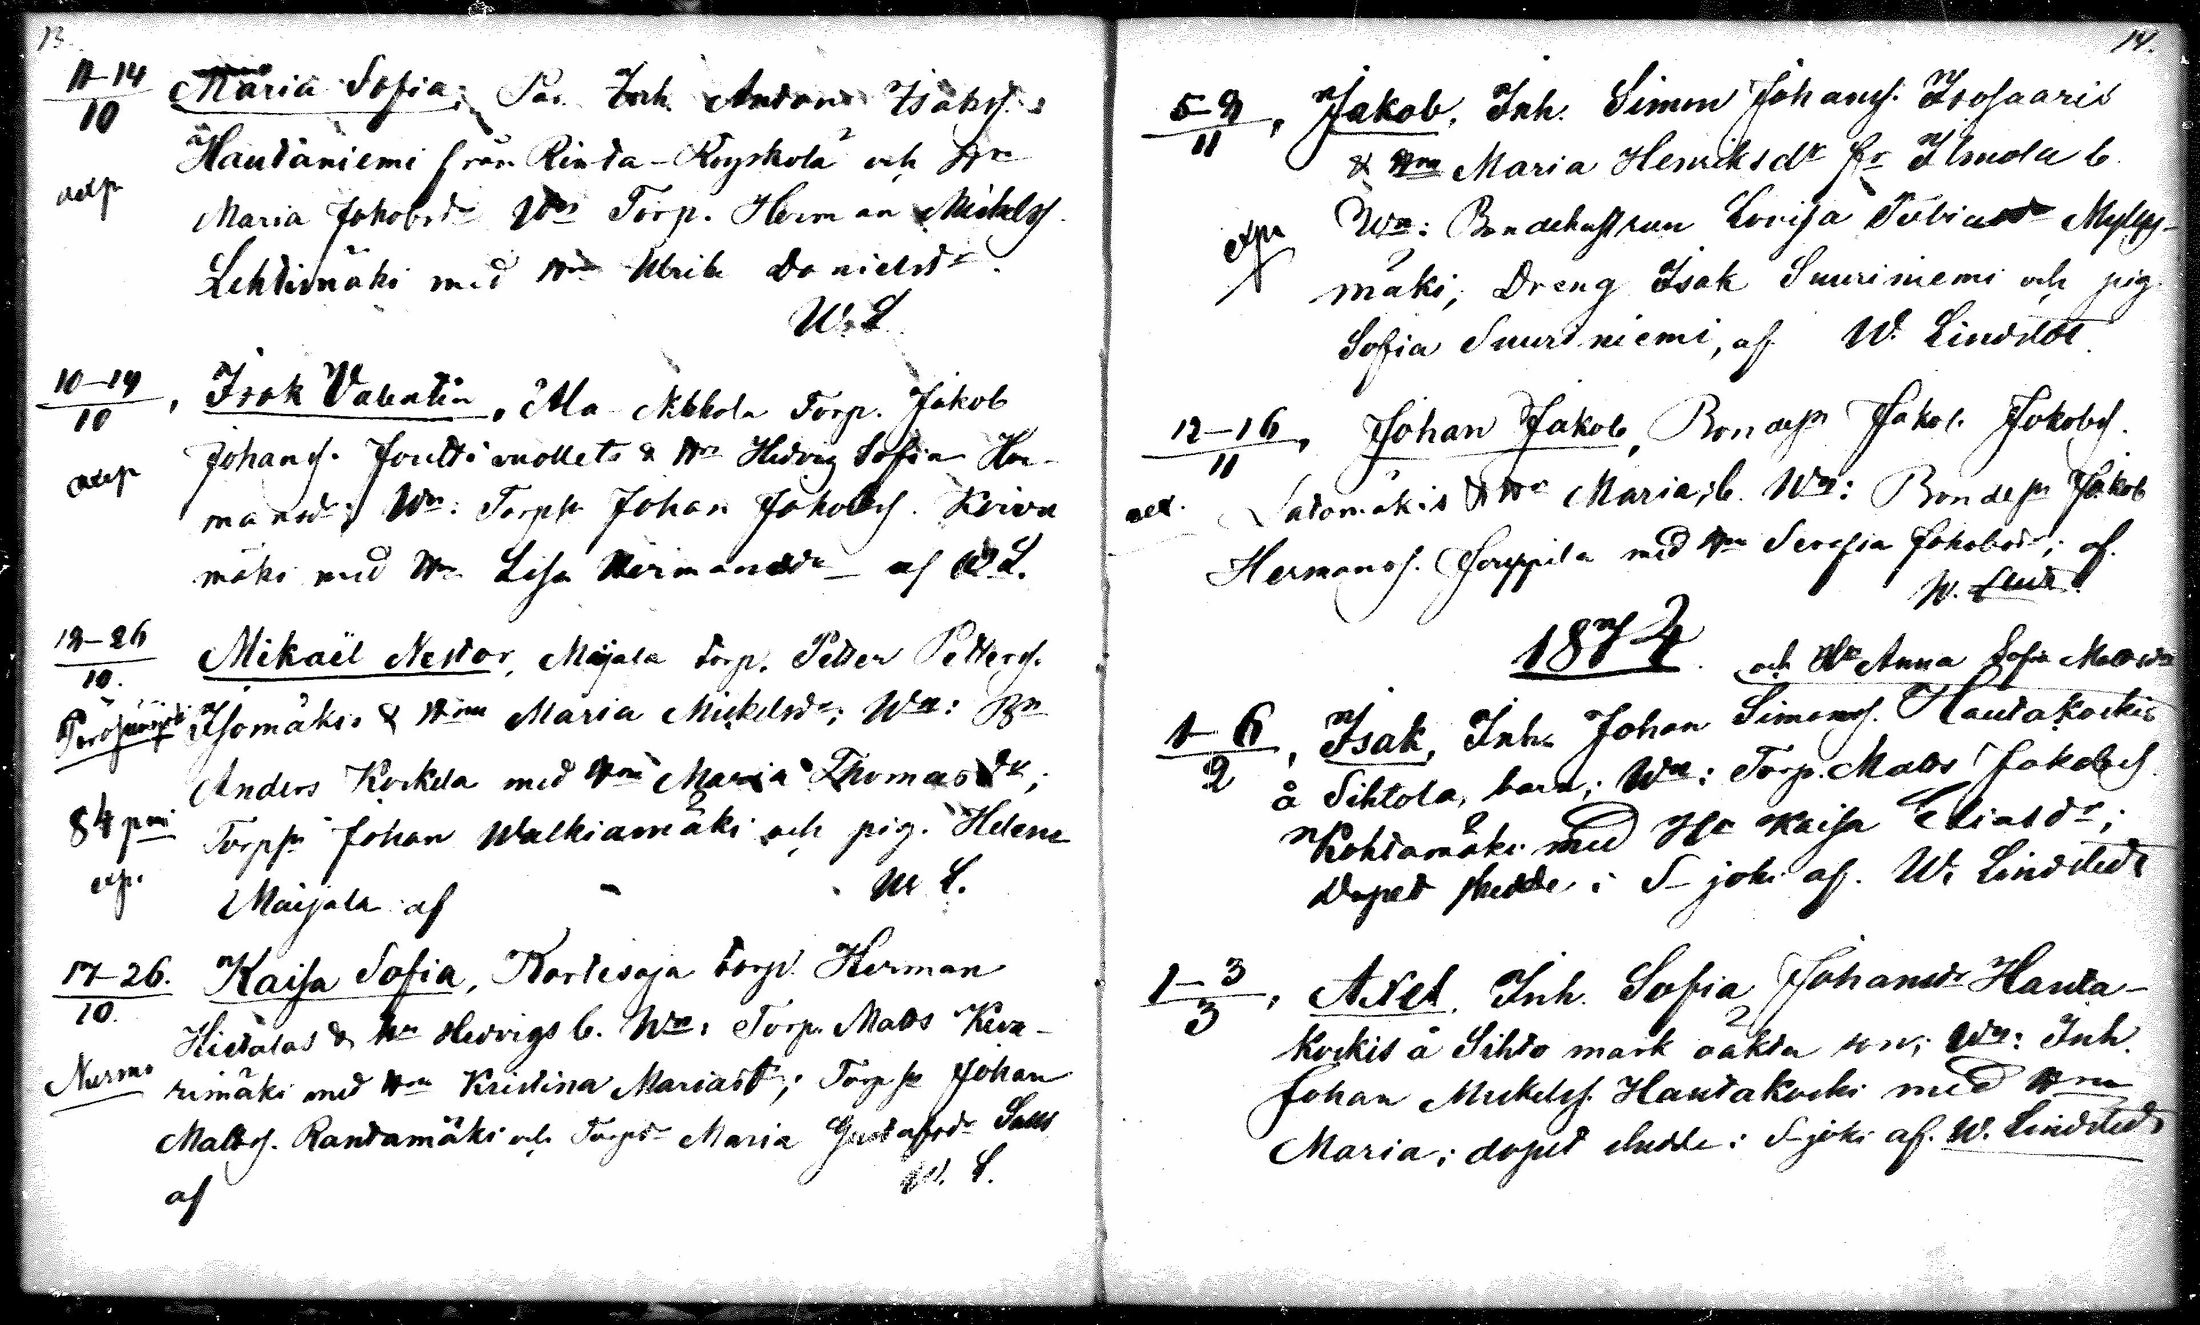 13.
11–14
10
Maria Sofia, Inh. Anton Isakss. s
å Hautaniemi från Rinta-Koyskola och Hu
exp
Maria Jakobsdr Wn Torp. Herman Mickelss.
Lehtimäki med Hu Ulrika Danielsdr.
W. L.
10–19
10
, Isak Valentin, Ala Torp. Jakob
Johanss. & Hu Hedvig Sofia Her-
exp
mansdr; Wn: Torpsn Johan Jakobss. Koivu
mäki med Hu Lisa Hermansdr – af W. L.
12–26
10.
Mikaël Nestor, Maijala torp. Petter Petterss.
Isomäkis & Hu Maria Mickelsdr; Wn: Bn
Anders Kockela med Hu Maria Thomasdr;
84
exp.
Torpsn Johan Walkiamäki och pig. Helena
Maijala af W. L.
17–26.
10.
Kaisa Sofia, Kortesoja torp. Herman
Hietalas & Hu Hedvigs b. Wn: Torp. Matts Keva-
Nurmo
rimäki med Hu Kristina Mariasdr; Torpsn Johan
Mattss. Rantamäki och Torpdr Maria Gustafsdr
af W. L.
14.
5–9
11
, Jakob, Inh. Simon Johanss. Isosaaris
& Hu Maria Henriksdr fr Ilmola b.
Wn: Bondehustrun Lovisa Tobiasdr Myllys-
exp
mäki; Dreng Isak Suuriniemi och pig.
Sofia Suuriniemi, af W. Lindstedt.
12–16
11
, Johan Jakob, Bondesn Jakob Jakobss.
ex.
Latomäkis & Hu Maria; b. Wn: Bondesn Jakob
Hermanss. Jouppila med Hu Serafia Jakobsdr; af.
W. Lindst.
1874.
och Hu Anna Sofia Mattsdr
1–6
2
, Isak, Inh. Johan Simonss. Hautakoskis
å Sihtola, barn; Wn: Torp. Matts Jakobss.
Kohtamäki med Hu Kaisa Eliasdr;
Dopet skedde i S–joki af. W. Lindstedt
1–3
3
, Axel, Inh. Sofia Johansdr Hauta-
koskis å Sihto mark oäkta son; Wn: Inh.
Johan Mickelss. Hautakoski med Hu
Maria; dopet skedde i S–joki af. W. Lindstedt